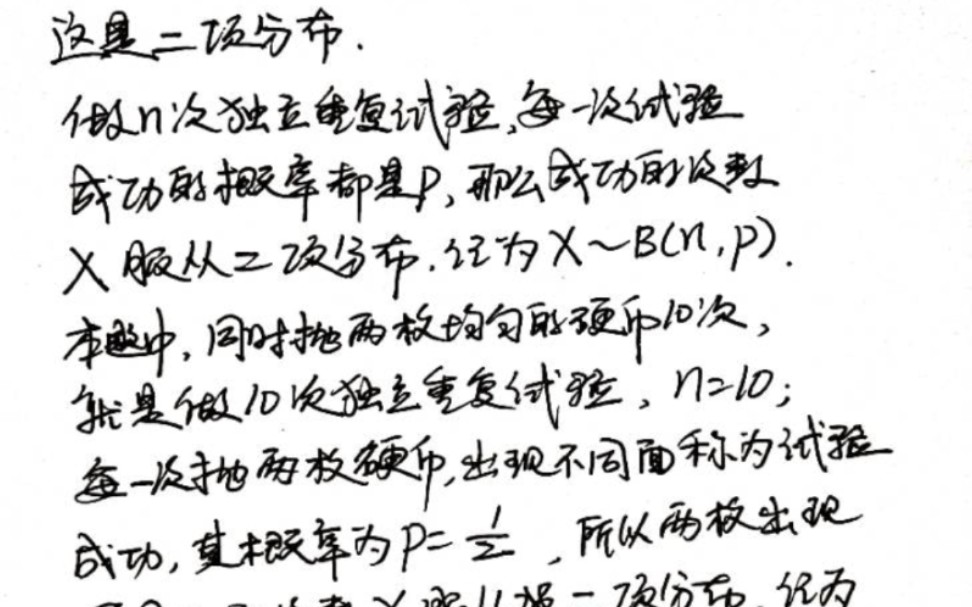 这是二项分布.
做n次独立重复试验,每一次试验
成功的概率都是P,那么成功的次数
X服从二项分布.记为X~B(n,p).
本题中,同时抛两枚均匀的硬币10次,
就是做10次独立重复试验,n=10;
每一次抛两枚硬币,出现不同面称为试验
成功,其概率为P=1/2,所以两枚出现